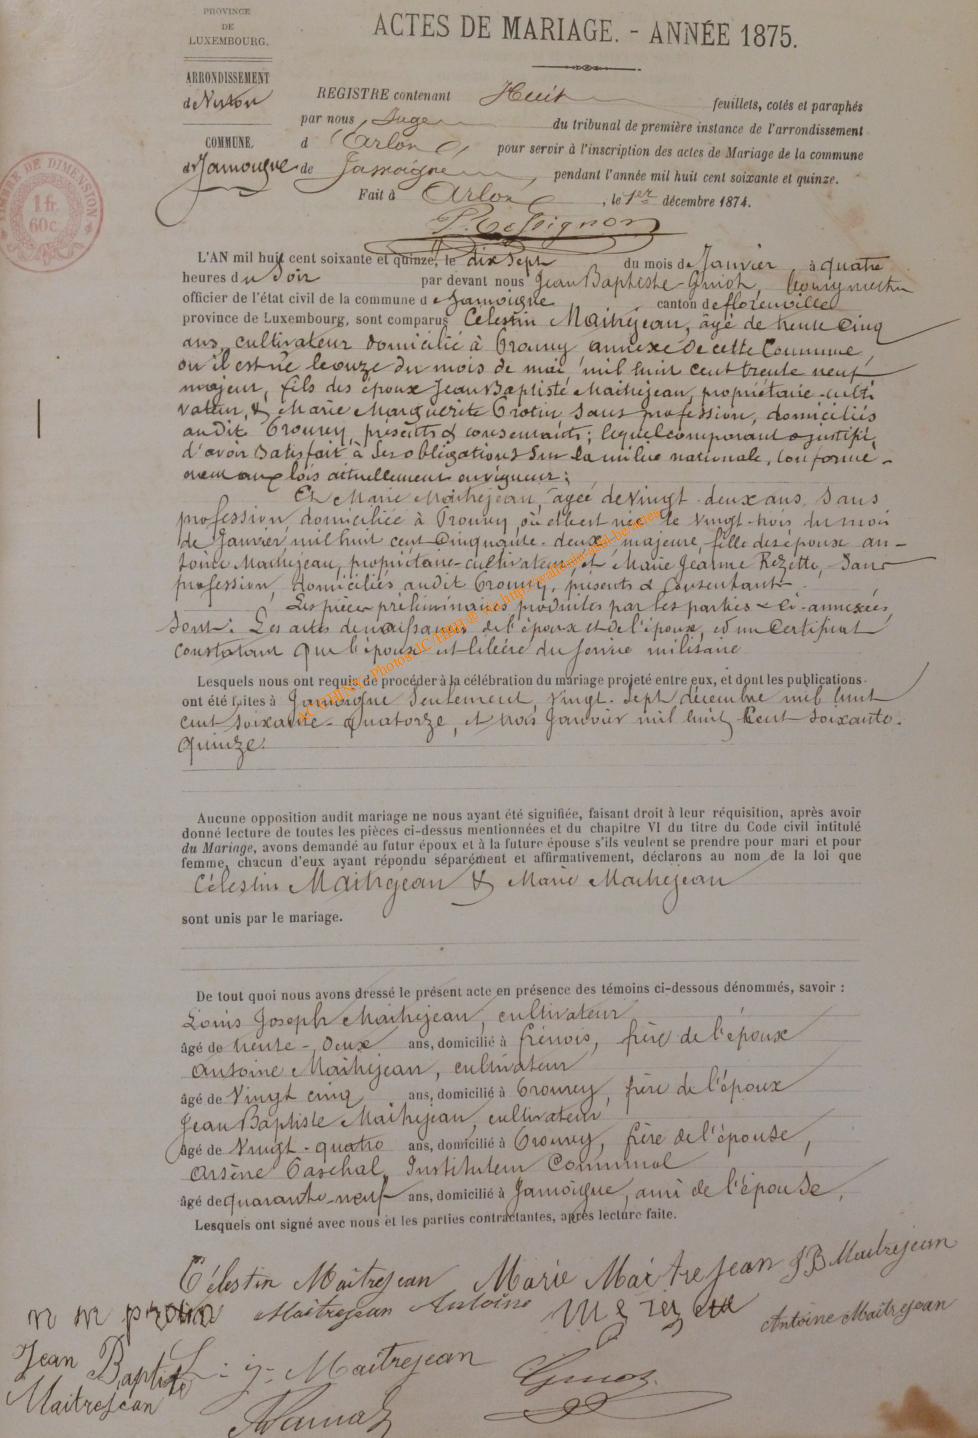 PROVINCE
DE
LUXEMBOURG.
ARRONDISSEMENT
de Virton
COMMUNE
de Jamoigne
TIMBRE DE DIMENSION
1 fr.
60c.
ACTES DE MARIAGE. - ANNÉE 1875.
REGISTRE contenant Huit feuillets, cotés et paraphés
par nous Juge du tribunal de première instance de l'arrondissement
d'Arlon pour servir à l'inscription des actes de Mariage de la commune
de Jamoigne, pendant l'année mil huit cent soixante et quinze.
Fait à Arlon, le 1er décembre 1874.
L'AN mil huit cent soixante et quinze, le dix sept du mois de Janvier à quatre
heures du Soir par devant nous Jean Baptiste Guiot, bourgmestre
officier de l'état civil de la commune de Jamoigne canton de florenville
province de Luxembourg, sont comparus Célestin Maitrejean, âgé de trente cinq
ans, cultivateur domicilié à Prouvy, annexe de cette Commune,
où il est né le onze du mois de mai, mil huit cent trente neuf
majeur, fils des époux Jean Baptiste Maitrejean, propriétaire-culti
vateur, & Marie Marguerite Protin sans profession, domiciliés
au dit Prouvy, présents & consentants; lequel comparant a justifié
d'avoir satisfait à ses obligations sur la milice nationale, conformé-
ment aux lois actuellement en vigueur;
Et Marie Maitrejean, âgée de vingt-deux ans, sans
profession, domiciliée à Prouvy, où elle est née le vingt-trois du mois
de Janvier mil huit cent cinquante-deux, majeure, fille des époux An-
toine Maitrejean, propriétaire-cultivateur, et Marie Jeanne Rezette, sans
profession, domiciliés audit Prouvy, présents & consentants.
Les pièces préliminaires produites par les parties & ci-annexées,
sont: Les actes de naissances de l'époux et de l'épouse, et un Certificat
constatant que l'époux est libéré du service militaire
Lesquels nous ont requis de procéder à la célébration du mariage projeté entre eux, et dont les publications
ont été faites à Jamoigne seulement, vingt-sept décembre mil huit
cent soixante-quatorze, et trois Janvier mil huit cent soixante-
quinze.
Aucune opposition audit mariage ne nous ayant été signifiée, faisant droit à leur réquisition, après avoir
donné lecture de toutes les pièces ci-dessus mentionnées et du chapitre VI du titre du Code civil intitulé
du Mariage, avons demandé au futur époux et à la future épouse s'ils veulent se prendre pour mari et pour
femme, chacun d'eux ayant répondu séparément et affirmativement, déclarons au nom de la loi que
Célestin Maitrejean & Marie Maitrejean
sont unis par le mariage.
De tout quoi nous avons dressé le présent acte en présence des témoins ci-dessous dénommés, savoir :
Louis Joseph Maitrejean, cultivateur
âgé de trente-deux ans, domicilié à frénois, frère de l'époux
Antoine Maitrejean, cultivateur
âgé de vingt cinq ans, domicilié à Prouvy, frère de l'époux
Jean Baptiste Maitrejean, cultivateur
âgé de vingt-quatre ans, domicilié à Prouvy, frère de l'épouse,
Arsène Paschal, Instituteur Communal
âgé de quarante-neuf ans, domicilié à Jamoigne, ami de l'épouse.
Lesquels ont signé avec nous et les parties contractantes, après lecture faite.
Célestin Maitrejean Marie Maitrejean J B Maitrejean
m m protin Maitrejean Antoine Antoine Maitrejean
Jean Baptiste Maitrejean L: j- Maitrejean
Guiot